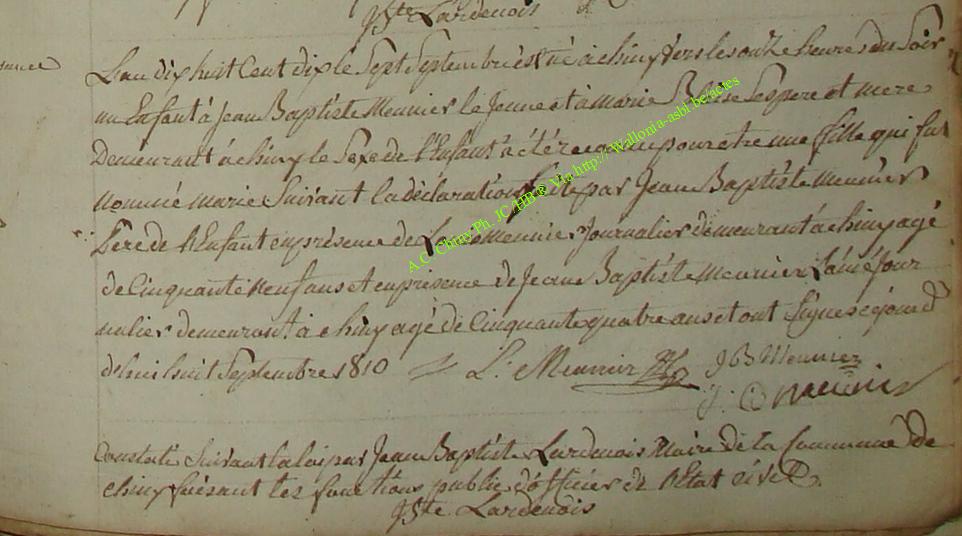 JBte Lardenois
L'an dix huit Cent dix le Sept Septembre est né a chiny vers les onze heures du Soir
un Enfant à Jean Baptiste Meunier le Jeune et à Marie Blaise Ses pere et mere
Demeurant à chiny le Sexe de l'Enfant a été reconnu pour etre une fille qui fut
nommé marie Suivant la déclaration faite par Jean Baptiste Meunier
Pere de l'Enfant en présence de Meunier Journalier demeurant a chiny agé
de Cinquante neuf ans et en présence de Jean Baptiste Meunier L'ainé Jour
nalier demeurant à chiny agé de Cinquante quatre ans et ont Signes ce jourd
dehui huit Septembre 1810 L. Meunier JB Meunier
Constaté Suivant la loi par Jean Baptiste Lardenois Maire de la Commune de
chiny fesant les fonctions public d'officier de l'Etat civil
JBte Lardenois
A.C. Chiny Ph. JC/HB® Via http://Wallonia-asbl.be/actes